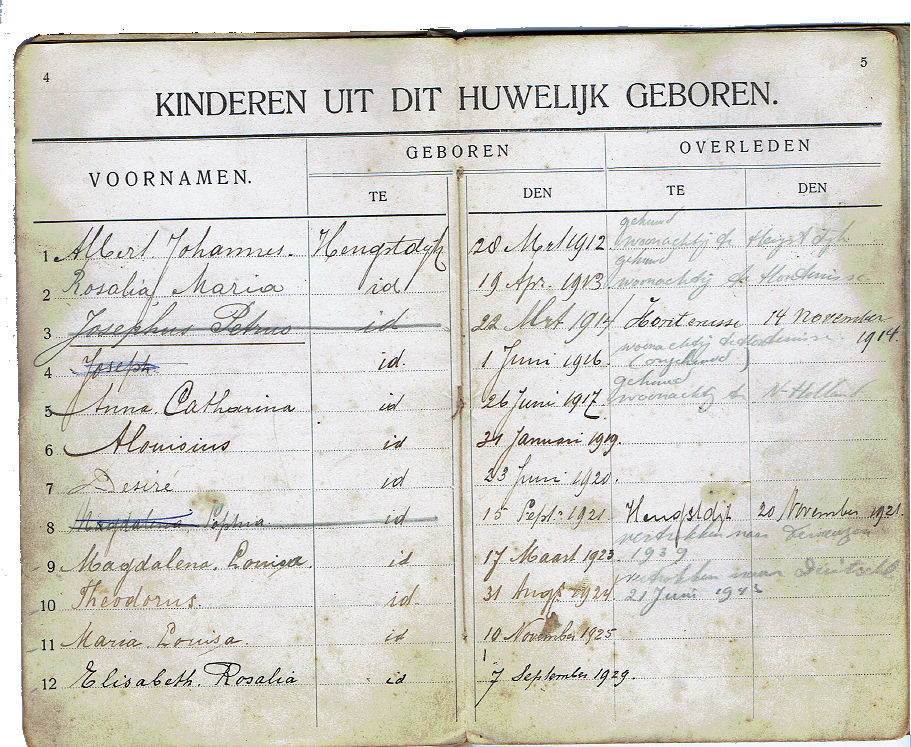 4
5
KINDEREN UIT DIT HUWELIJK GEBOREN.
VOORNAMEN.
GEBOREN
OVERLEDEN
TE
DEN
TE
DEN
gehuwd
1 Albert Johannes. Hengstdijk 28 Mrt 1912 woonachtig te
gehuwd
2 Rosalia Maria id 19 Apr. 1913 woonachtig te Hontenisse
3 Josephus Petrus id 22 Mrt 1914 Hontenisse 14 November 1914.
woonachtig te Hontenisse
4 Joseph. id. 1 Juni 1916 (ongehuwd)
gehuwd
5 Anna Catharina id 26 Juni 1917 woonachtig te N-Holland
6 Alouisius id 31 Januari 1919.
7 Desiré id 23 Juni 1920.
8 Magdalena Sophia id 15 Sept. 1921 Hengstdijk 20 November 1921.
vertrokken naar
9 Magdalena. Louisa. id 17 Maart 1923. 1939
vertrokken naar Duitschl
10 Theodorus. id 31 Augs. 1924 21 Juni 1943
11 Maria Louisa. id 10 November 1925
12 Elisabeth. Rosalia id 7 September 1929.